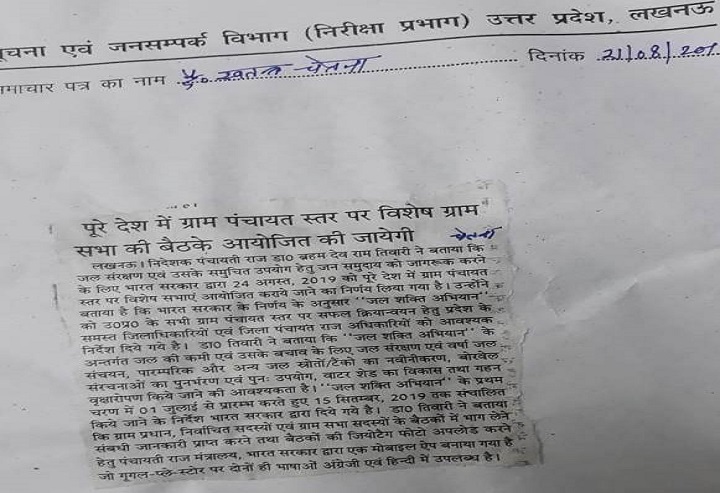 ूचना एवं जनसम्पर्क विभाग (निरीक्षा प्रभाग) उत्तर प्रदेश, लखनऊ
माचार पत्र का नाम चेतना दिनांक 21/08/201
पूरे देश में ग्राम पंचायत स्तर पर विशेष ग्राम
सभा की बैठके आयोजित की जायेगी
लखनऊ। निदेशक पंचायती राज डा0 ब्रहम देव राम तिवारी ने बताया कि
जल संरक्षण एवं उसके समुचित उपयोग हेतु जन समुदाय को जागरूक करने
के लिए भारत सरकार द्वारा 24 अगस्त, 2019 को पूरे देश में ग्राम पंचायत
स्तर पर विशेष सभाएं आयोजित कराये जाने का निर्णय लिया गया है। उन्होंने
बताया है कि भारत सरकार के निर्णय के अनुसार ''जल शक्ति अभियान''
को उ0प्र0 के सभी ग्राम पंचायत स्तर पर सफल क्रियान्वयन हेतु प्रदेश के
समस्त जिलाधिकारियों एवं जिला पंचायत राज अधिकारियों को आवश्यक
निर्देश दिये गये है। डा0 तिवारी ने बताया कि ''जल शक्ति अभियान'' के
अन्तर्गत जल की कमी एवं उसके बचाव के लिए जल संरक्षण एवं वर्षा जल
संचयन, पारम्परिक और अन्य जल स्रोतों/टैंको का नवीनीकरण, बोरवेल
संरचनाओं का पुनर्भरण एवं पुनः उपयोग, वाटर शेड का विकास तथा गहन
वृक्षारोपण किये जाने की आवश्यकता है। ''जल शक्ति अभियान'' के प्रथम
चरण में 01 जुलाई से प्रारम्भ करते हुए 15 सितम्बर, 2019 तक संचालित
किये जाने के निर्देश भारत सरकार द्वारा दिये गये है। डा0 तिवारी ने बताया
कि ग्राम प्रधान, निर्वाचित सदस्यों एवं ग्राम सभा सदस्यों के बैठकों में भाग लेने
संबधी जानकारी प्राप्त करने तथा बैठकों की जियोटैग फोटो अपलोड करने
हेतु पंचायती राज मंत्रालय, भारत सरकार द्वारा एक मोबाइल ऐप बनाया गया है
जो गूगल-प्ले-स्टोर पर दोनों ही भाषाओं अंग्रेजी एवं हिन्दी में उपलब्ध है।